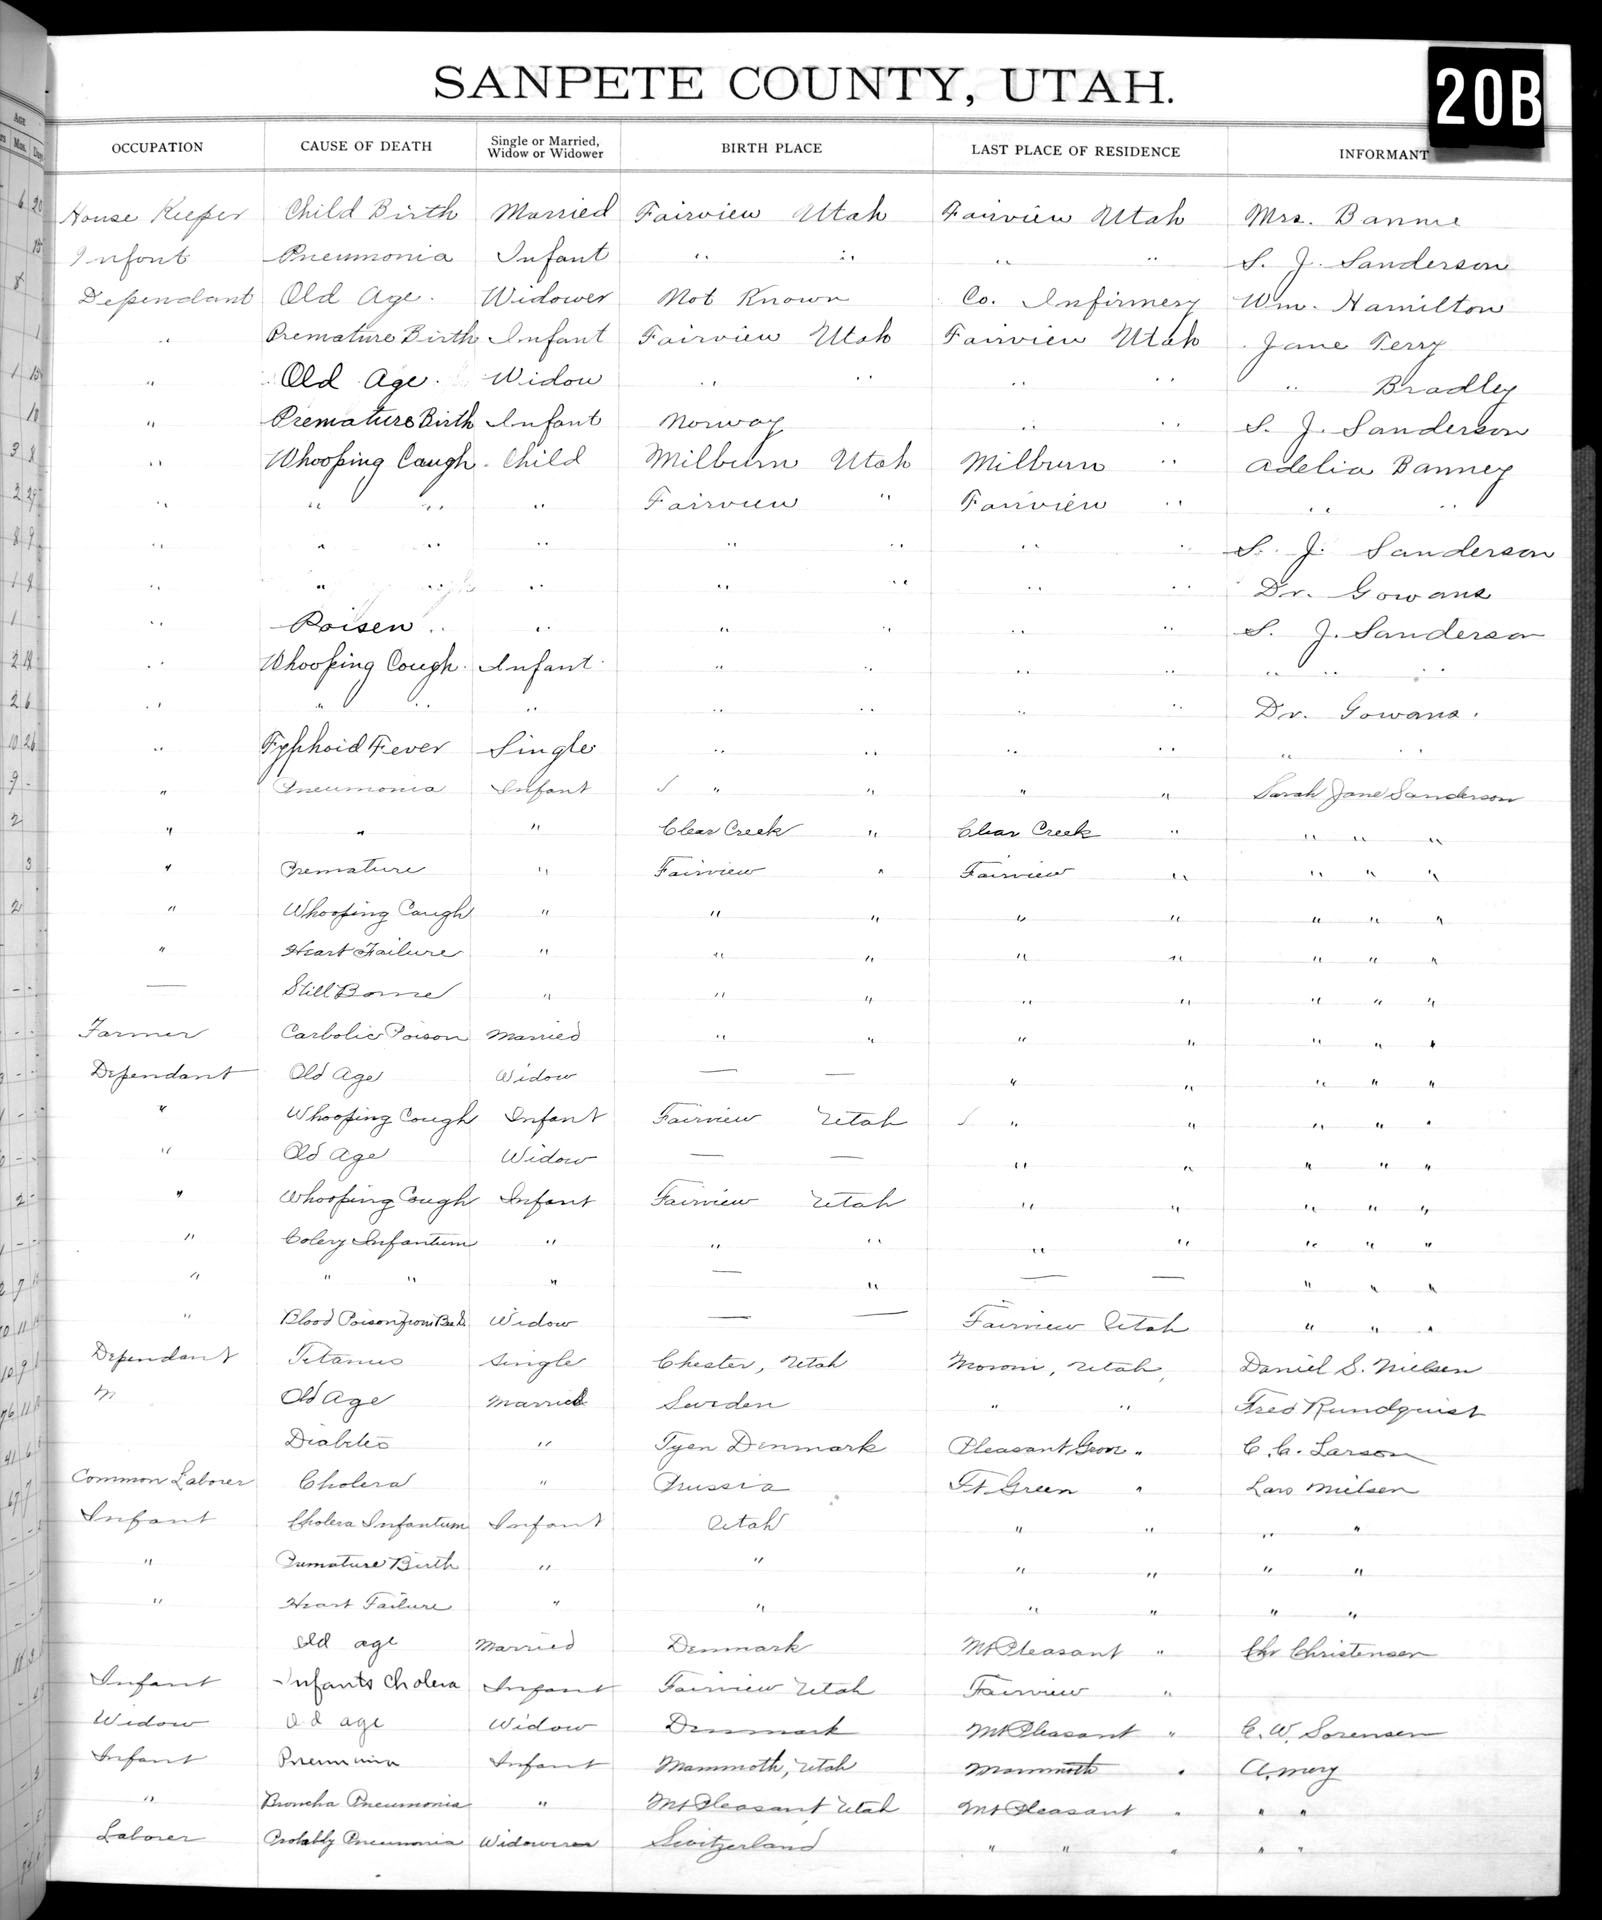 SANPETE COUNTY, UTAH.
20B
OCCUPATION CAUSE OF DEATH Single or Married, Widow or Widower BIRTH PLACE LAST PLACE OF RESIDENCE INFORMANT
House Keeper Child Birth Married Fairview Utah Fairview Utah Mrs. Bannie
Infant Pneumonia Infant " " " " S. J. Sanderson
Dependant Old Age. Widower Not Known Co. Infirmery Wm. Hamilton
" Premature Birth Infant Fairview Utah Fairview Utah Jane Terry
" Old Age. Widow " " " " " Bradley
" Premature Birth Infant Norway " " S. J. Sanderson
" Whooping Cough. Child Milburn Utah Milburn " Adelia Banney
" " " " Fairview " Fairview " " "
" " " " " " " " S. J. Sanderson
" " " " " " " Dr. Gowans
" Poisen " " " " " " S. J. Sanderson
" Whooping Cough. Infant " " " " " " "
" " " " " " " " Dr. Gowans.
" Typhoid Fever Single " " " " " "
" Pneumonia Infant " " " " Sarah Jane Sanderson
" " " Clear Creek " Clear Creek " " " "
" Premature " Fairview " Fairview " " " "
" Whooping Cough " " " " " " " "
" Heart Failure " " " " " " " "
— Still Borne " " " " " " " "
Farmer Carbolic Poison Married " " " " " " "
Dependant Old Age Widow — — " " " " "
" Whooping Cough Infant Fairview Utah " " " " "
" Old Age Widow — — " " " " "
" Whooping Cough Infant Fairview Utah " " " " "
" Colery Infantum " " " " " " " "
" " " " — " — — " " "
" Blood Poison from Widow — — Fairview Utah " " "
Dependant Titanus Single Chester, Utah Moroni, Utah, Daniel S. Nielsen
Old Age Married Sweden " " Fred Rundquist
Diabetes " Denmark Pleasant " C. C. Larson
Common Laborer Cholera " Prussia Ft. Green " Lars Nielsen
Infant Cholera Infantum Infant Utah " " " "
" Premature Birth " " " " " "
" Heart Failure " " " " " "
Old age Married Denmark Mt Pleasant " Chr Christensen
Infant Infants Cholera Infant Fairview Utah Fairview "
Widow Old age Widow Denmark Mt Pleasant " C. W. Sorensen
Infant Pneumonia Infant Mammoth, Utah Mammoth "
" Broncha Pneumonia " Mt Pleasant, Utah Mt Pleasant " " "
Laborer Probably Pneumonia Switzerland " " " " "